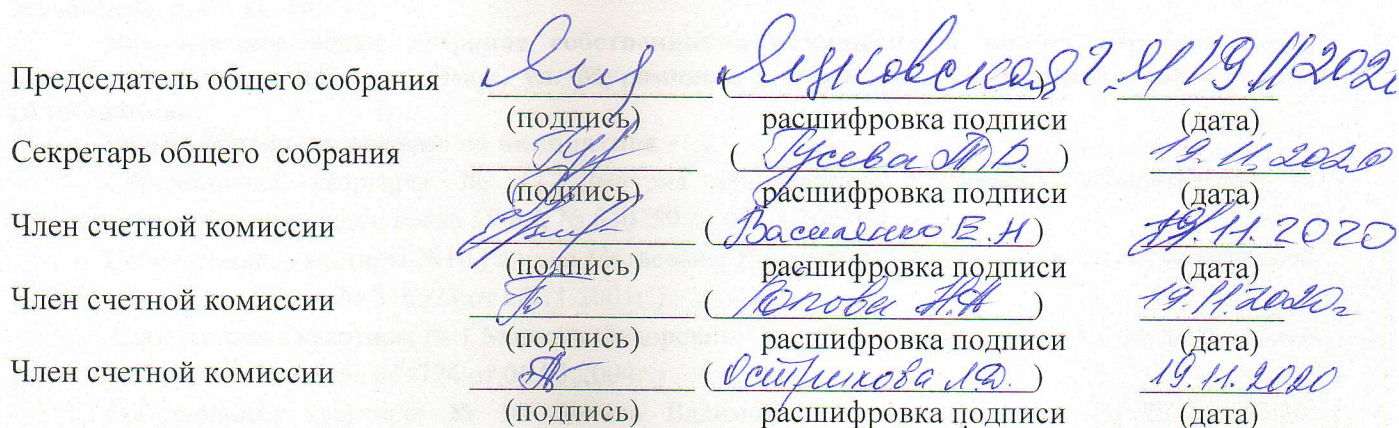 Председатель общего собрания (Яцковская Г.М 19.11.2020
(подпись) расшифровка подписи (дата)
Секретарь общего собрания (Гусева Т.В.) 19.11.2020
(подпись) расшифровка подписи (дата)
Член счетной комиссии (Василенко Е.Н) 19.11.2020
(подпись) расшифровка подписи (дата)
Член счетной комиссии (Попова Н.А) 19.11.2020г
(подпись) расшифровка подписи (дата)
Член счетной комиссии (Острикова Л.Д.) 19.11.2020
(подпись) расшифровка подписи (дата)